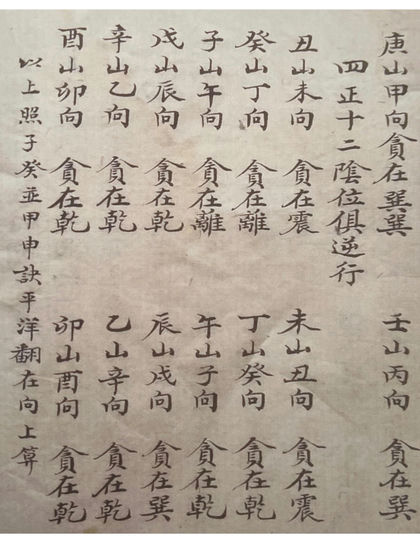 庚山甲向貪在巽巽 壬山丙向 貪在巽
四正十二陰位俱逆行
丑山未向 貪在震 未山丑向 貪在震
癸山丁向 貪在離 丁山癸向 貪在乾
子山午向 貪在離 午山子向 貪在乾
戌山辰向 貪在乾 辰山戌向 貪在巽
辛山乙向 貪在乾 乙山辛向 貪在乾
酉山卯向 貪在乾 卯山酉向 貪在乾
以上照子癸並甲申訣平洋翻在向上算